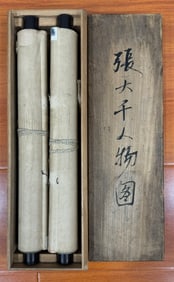 張大千人物圖